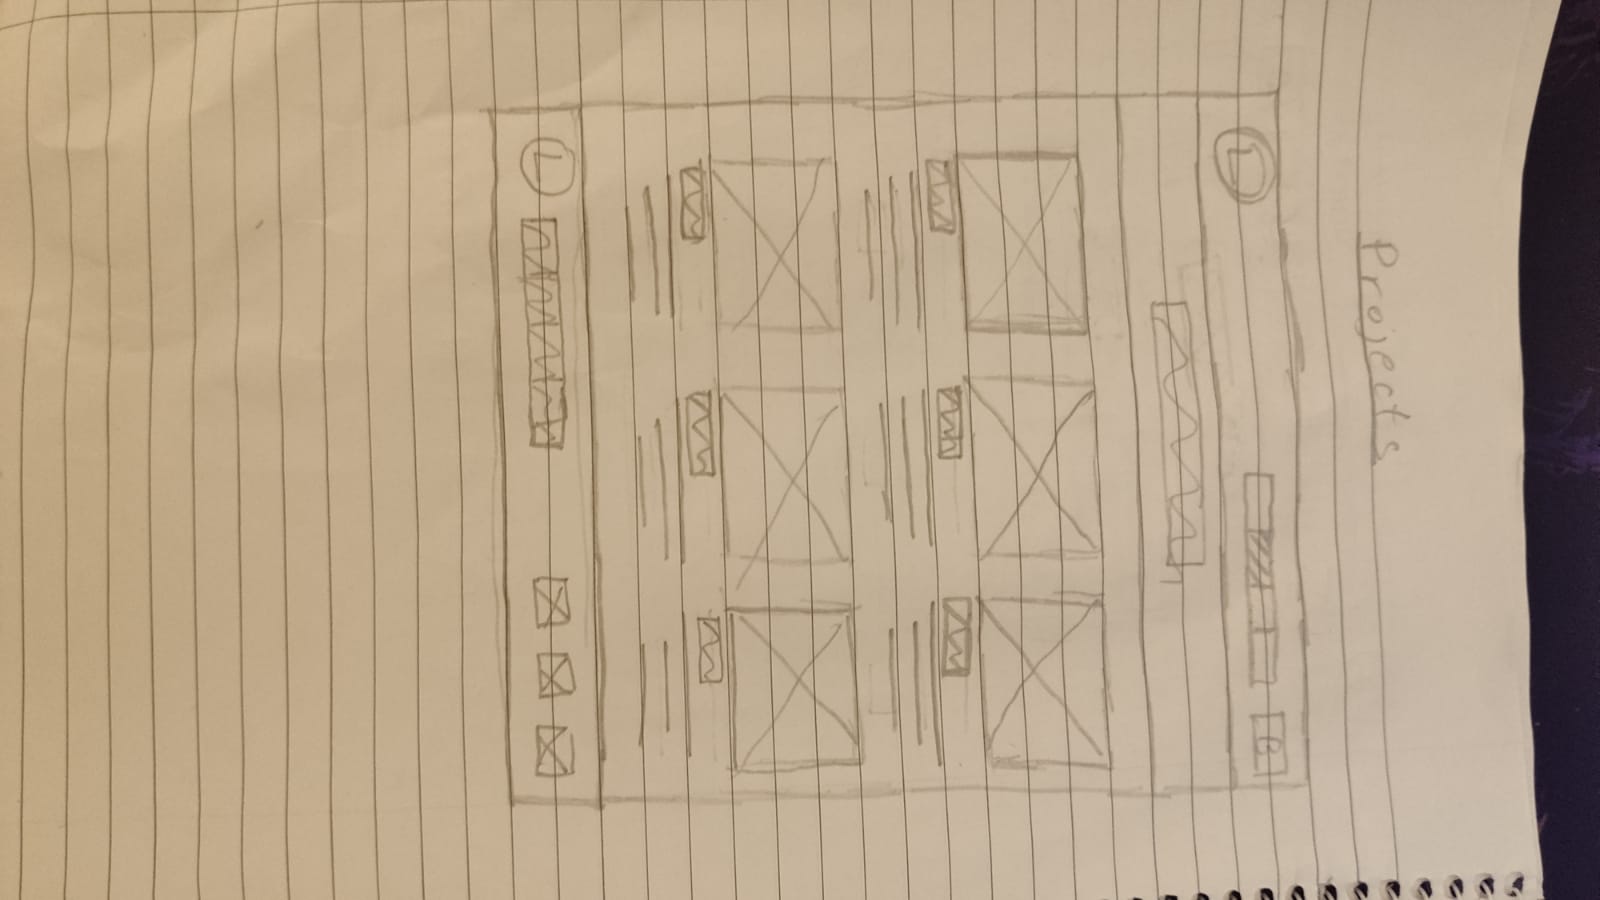 Projects
L
B
L